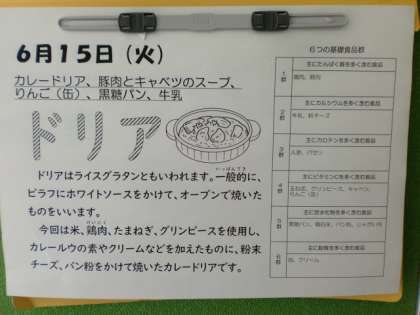 6月15日（火）
カレードリア、豚肉とキャベツのスープ、
りんご（缶）、黒糖パン、牛乳
ドリア
ドリアはライスグラタンともいわれます。一般的に、
いっぱんてき
ピラフにホワイトソースをかけて、オーブンで焼いた
ものをいいます。
今回は米、鶏肉、たまねぎ、グリンピースを使用し、
けいにく
カレールウの素やクリームなどを加えたものに、粉末
チーズ、パン粉をかけて焼いたカレードリアです。
6つの基礎食品群
主にたんぱく質を多く含む食品
1群
鶏肉、豚肉
主にカルシウムを多く含む食品
2群
牛乳、粉チーズ
主にカロテンを多く含む食品
3群
人参、パセリ
主にビタミンCを多く含む食品
4群
玉ねぎ、グリンピース、キャベツ、
りんご（缶）
主に炭水化物を多く含む食品
5群
主に脂肪を多く含む食品
6群
油、クリーム